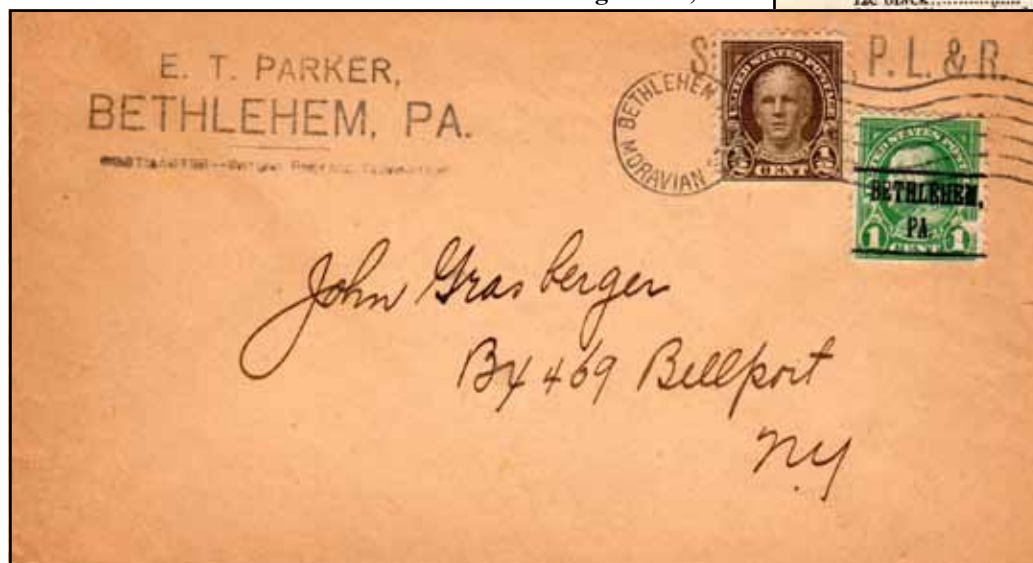 E. T. PARKER,
BETHLEHEM, PA.
P. L. & R.
BETHLEHEM
MORAVIAN
UNITED STATES POSTAGE
1/2 1/2
CENT
UNITED STATES POST
BETHLEHEM,
PA.
1 CENT 1
John Grasberger
Bx 469 Bellport
NY